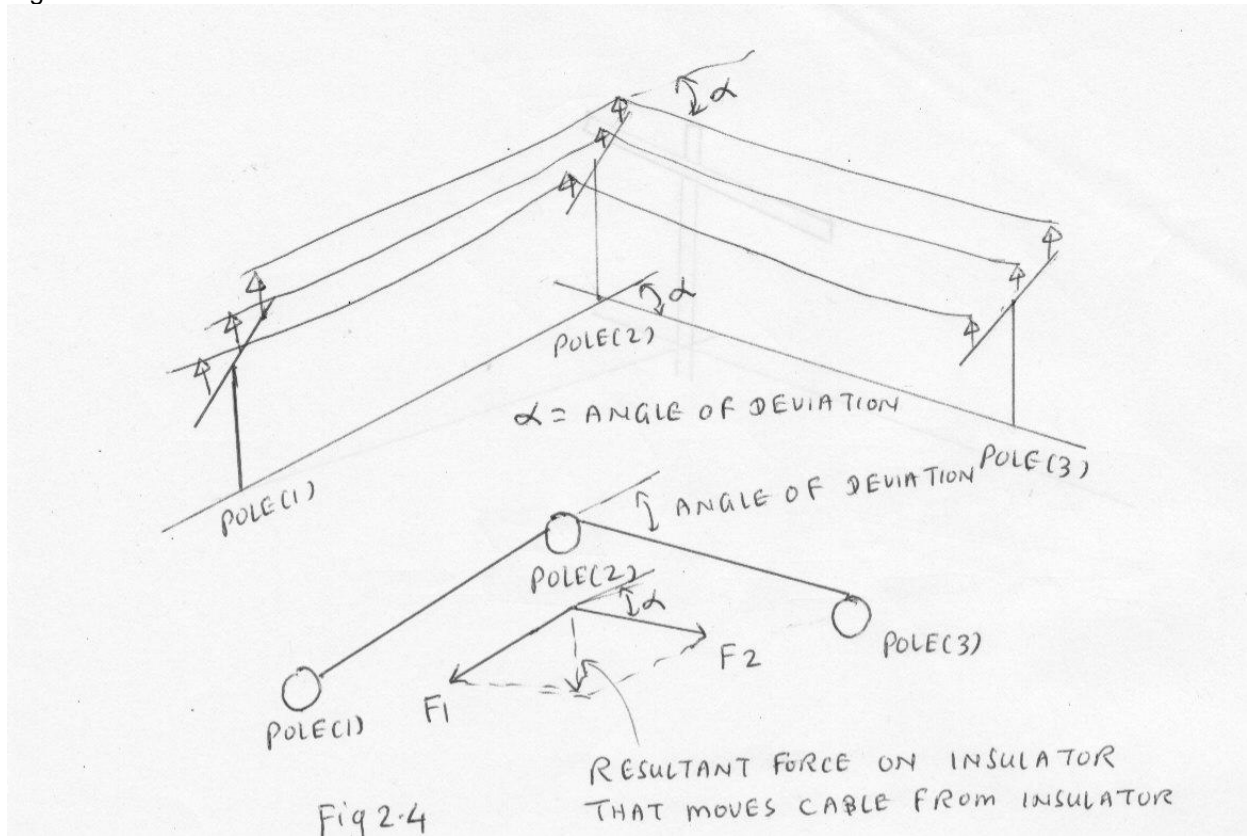 α
α
POLE(2)
α = ANGLE OF DEVIATION
POLE(1)
POLE(3)
ANGLE OF DEVIATION
POLE(2)
α
F2
POLE(3)
F1
POLE(1)
RESULTANT FORCE ON INSULATOR
THAT MOVES CABLE FROM INSULATOR
Fig 2.4